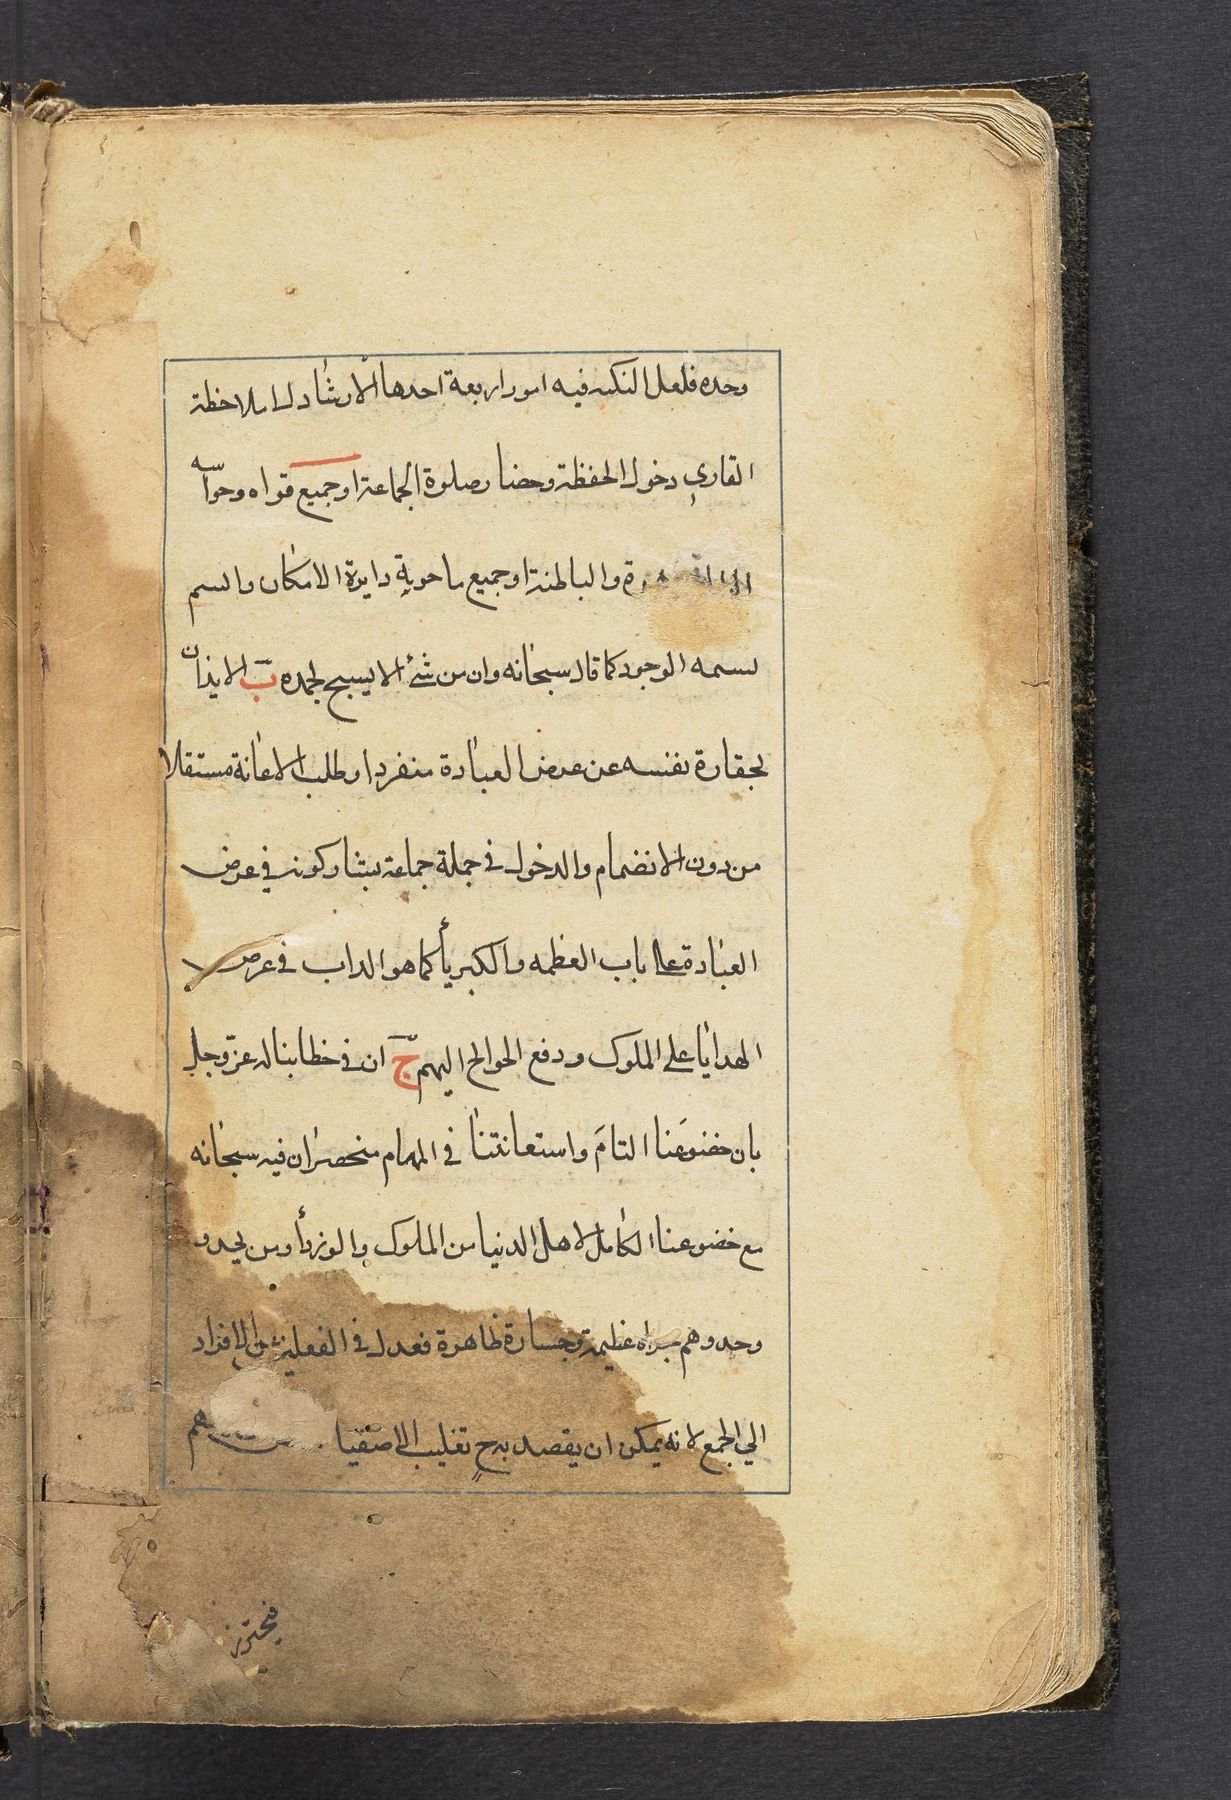 وحده فلعل النكته فيه امور اربعة احدها الارشاد الى ملاحظة
القاري دخول الحفظة وحضار صلوة الجماعة او جميع قواه وحواسه
والباطنة او جميع ما حوية دايرة الامكان واتسم
بسمه الوجود كما قال سبحانه وان من شئ الا يسبح بحمده ب الايذان
بحقارة نفسه عن عرض العبادة منفردا وطلب الاعانة مستقلا
من دون الانضمام والدخول في جملة جماعة يشاركونه في عرض
العبادة على باب العظمه والكبريأ كما هو الداب في عرض
الهدايا على الملوك ورفع الحوائج اليهم ج ان في خطابنا له عز وجل
بان خضوعنا التام واستعانتنا في المهام منحصران فيه سبحانه
مع خضوعنا الكامل لاهل الدنيا من الملوك والوزرأ ومن يحدو
وحدوهم جراه عظيمة وجسارة ظاهرة فعدل في الفعلين عن الافراد
الي الجمع لانه يمكن ان يقصد به ح تغليب الاصفيا
فيحترز